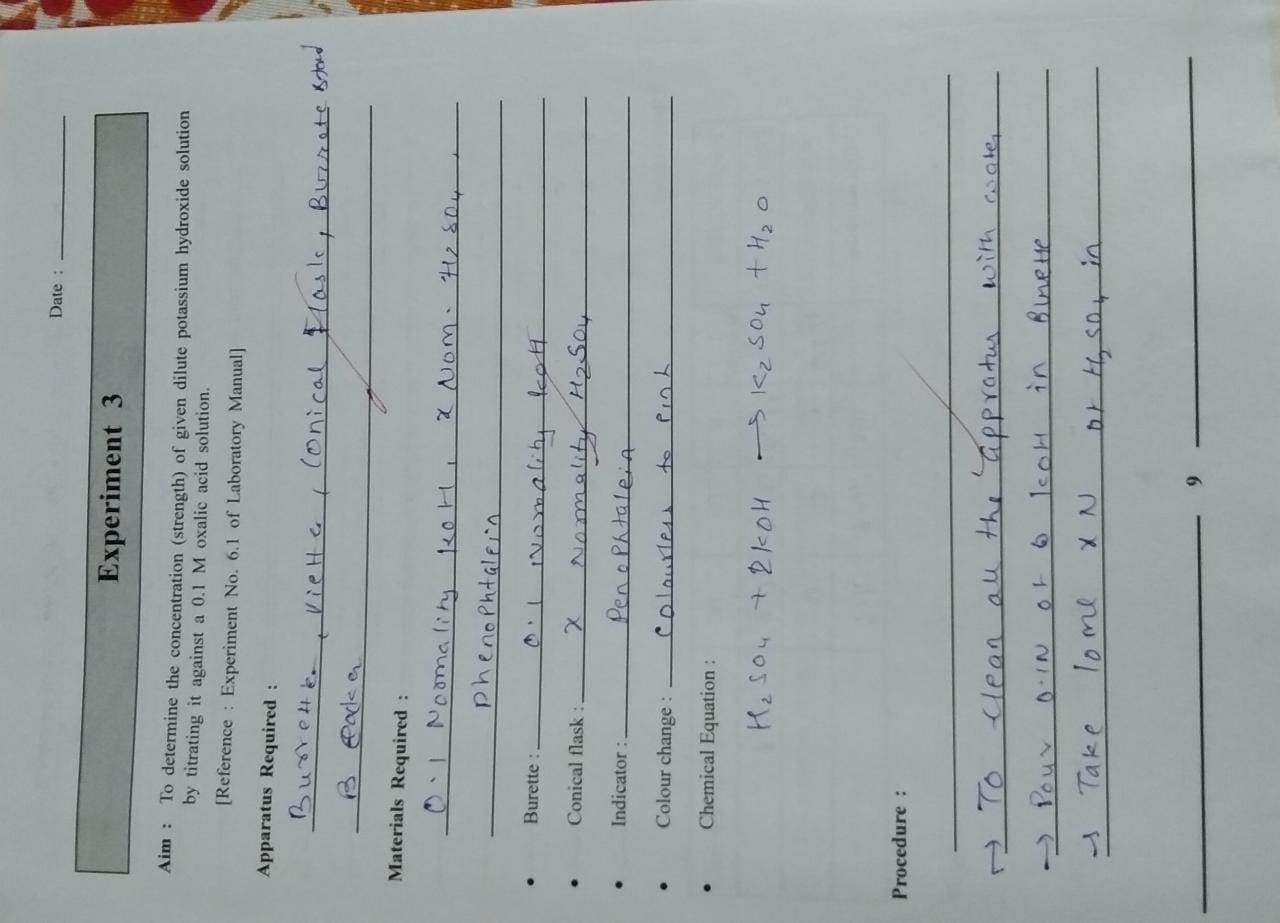 Date :
Experiment 3
Aim : To determine the concentration (strength) of given dilute potassium hydroxide solution
by titrating it against a 0.1 M oxalic acid solution.
[Reference : Experiment No. 6.1 of Laboratory Manual]
Apparatus Required :
Burrette, Piette, Conical Flask, Burrate stand
Beaker
Materials Required :
0.1 Normality KOH, x Nom. H2SO4,
Phenophtalein
• Burette : 0.1 Normality KOH
• Conical flask : x Normality H2SO4
• Indicator : Penophtalein
• Colour change : Colourless to Pink
• Chemical Equation :
H2SO4 + 2KOH → K2SO4 + H2O
Procedure :
→ To clean all the appratus with water
→ Pour 0.1N of 6 KOH in Burette
→ Take 10ml x N of H2SO4 in
9